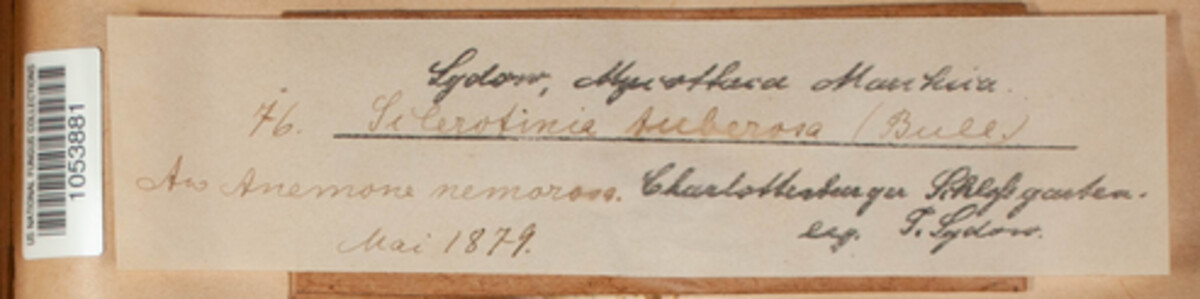 US NATIONAL FUNGUS COLLECTIONS
01053881
Sydow, Mycotheca Marchica.
76. Sclerotinia tuberosa (Bull.)
An Anemone nemorosa. Charlottenburger Schloßgarten.
Mai 1879.
leg. P. Sydow.